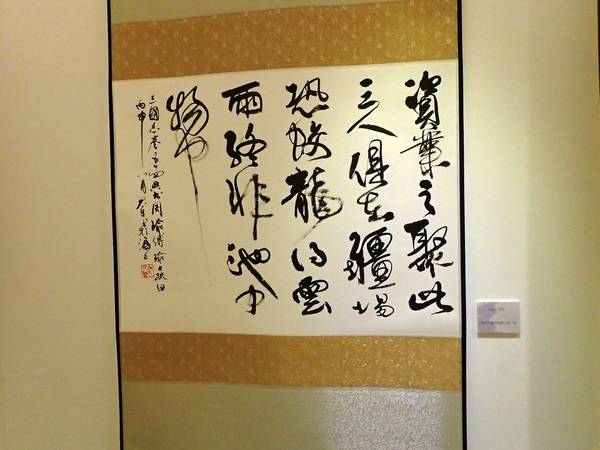 資業之聚此
三人俱在疆場
恐蛟龍得雲
雨終非池中
物也
三國志卷五四吳書周瑜傳瑜上疏曰
丙申八月